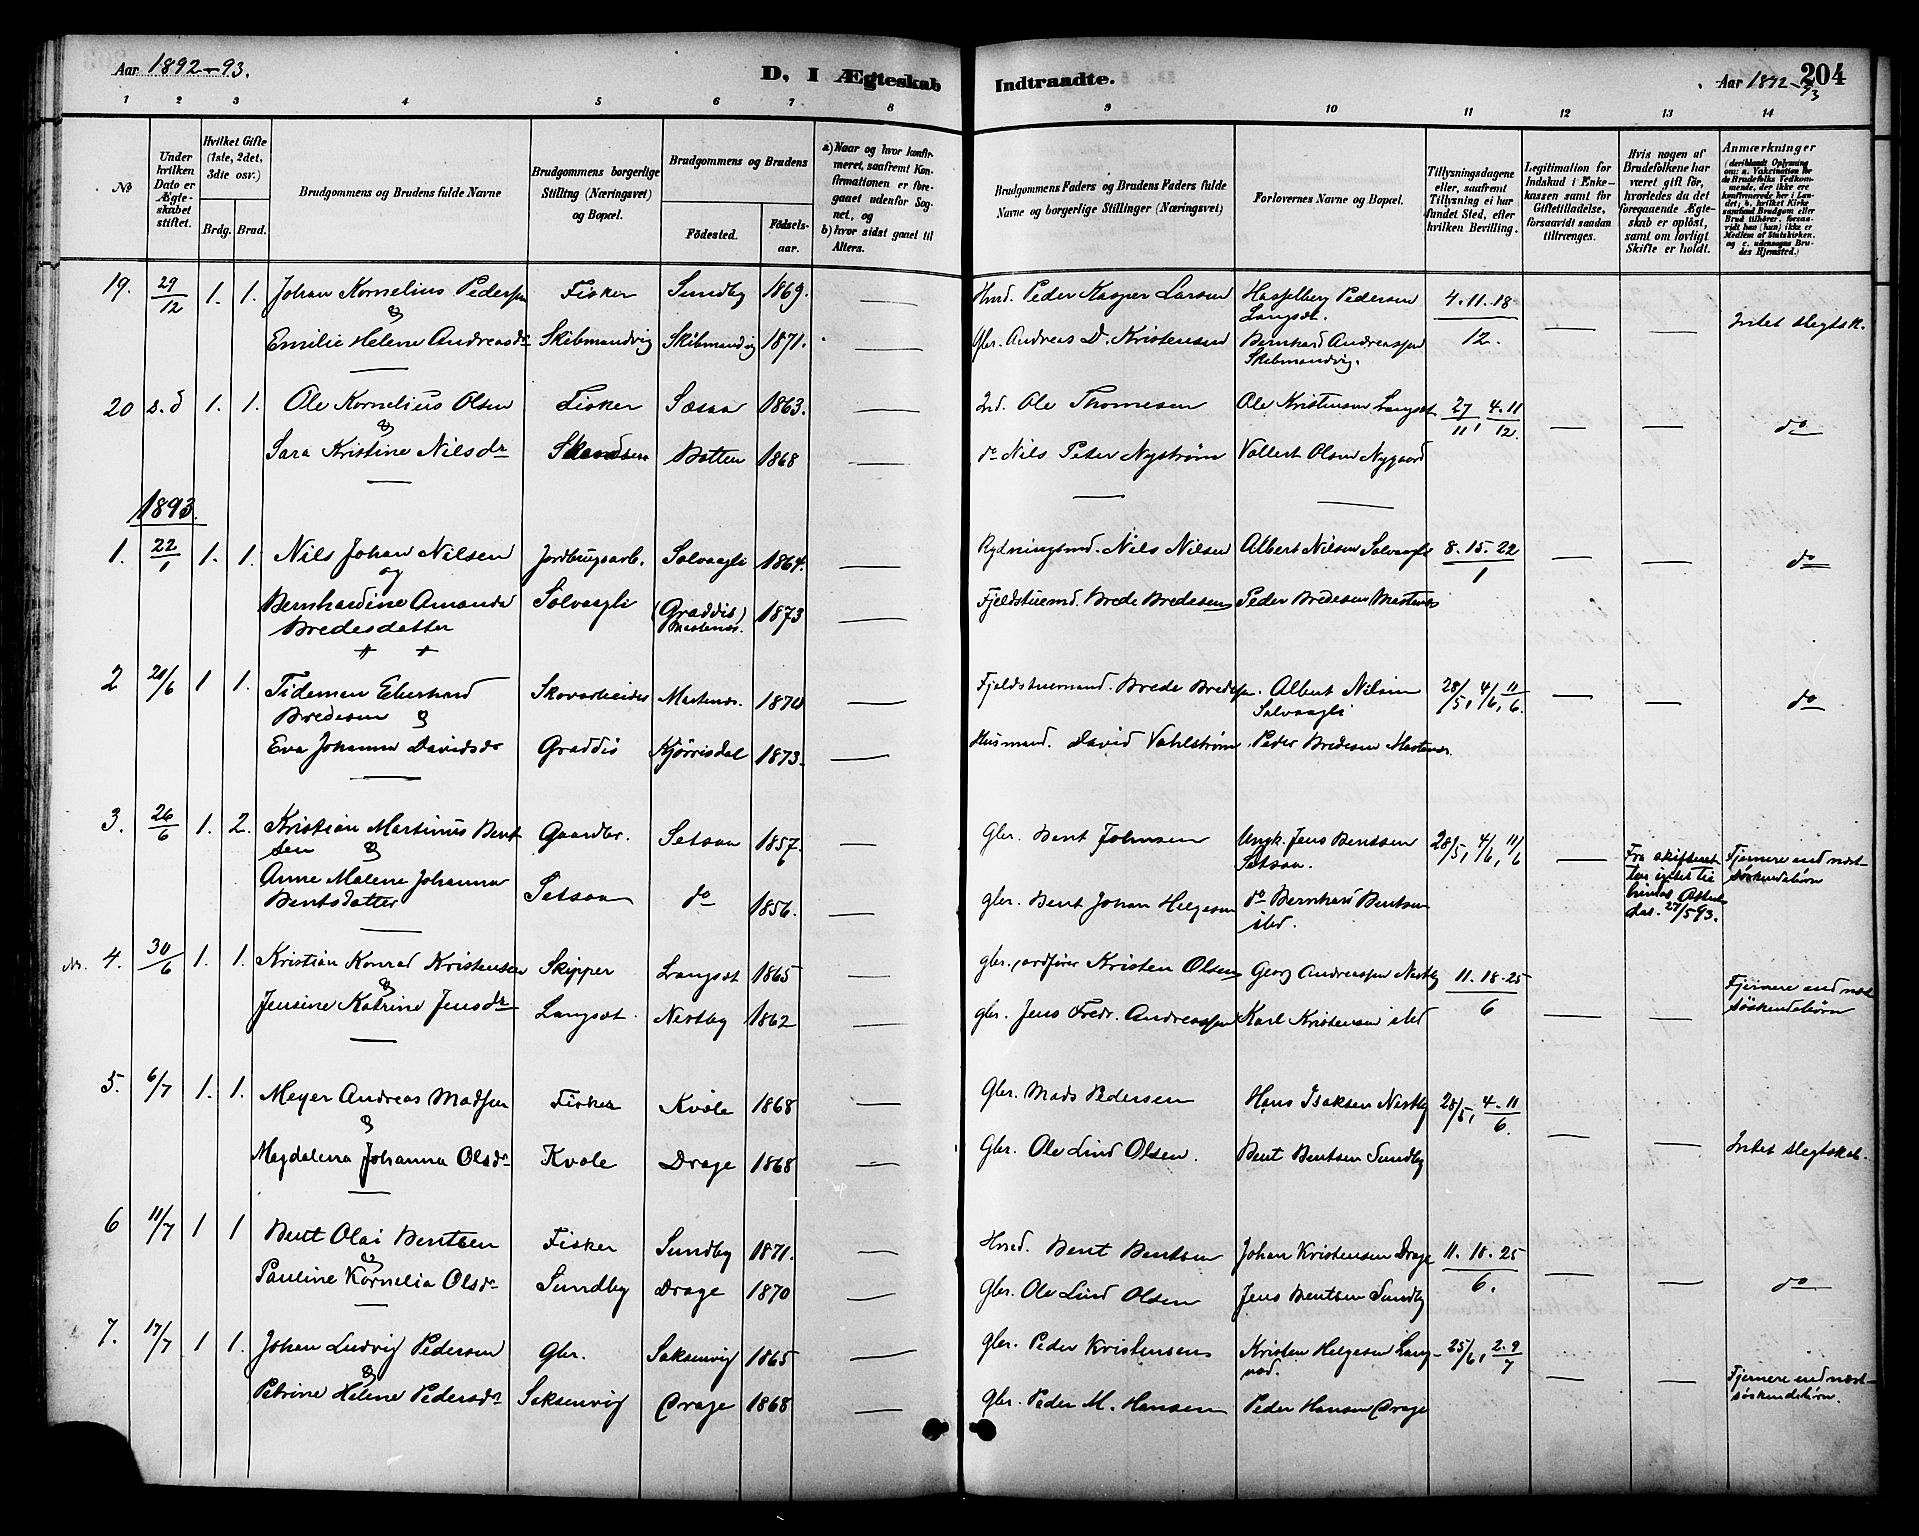 Aar 1892-93.
D, I Ægteskab
Indtraadte.
Aar 1892-93
204
1 2 3 4 5 6 7 8
9 10 11 12 13 14
No
Under hvilken Dato er Ægteskabet stiftet.
Hvilket Gifte (1ste, 2det, 3die osv.)
Brdg. Brud.
Brudgommens og Brudens fulde Navne
Brudgommens borgerlige Stilling (Næringsvei) og Bopæl.
Brudgommens og Brudens
Fødested.
Fødselsaar.
a) Naar og hvor konfirmeret, saafremt Konfirmationen er foregaaet udenfor Sognet, og
b) hvor sidst gaaet til Alters.
Brudgommens Faders og Brudens Faders fulde Navne og borgerlige Stillinger (Næringsvei)
Forlovernes Navne og Bopæl.
Tillysningsdagene eller, saafremt Tillysning ei har fundet Sted, efter hvilken Bevilling.
Legitimation for Indskud i Enkekassen samt for Giftetilladelse, forsaavidt saadan tiltrænges.
Hvis nogen af Brudefolkene har været gift før, hvorledes da det foregaaende Ægteskab er opløst, samt om lovligt Skifte er holdt.
Anmærkninger (deriblandt Oplysning om: a. Vakcination for de Brudefolks Vedkommende, der ikke ere konfirmerede her i Landet; b. hvilket Kirkesamfund Brudgom eller Brud tilhører, forsaavidt han (hun) ikke er Medlem af Statskirken, og c. udensogns Brudes Hjemsted.)
19. 29/12 1. 1. Johan Kornelius Pedersen Fisker Sundby 1869. — Hmd. Peder Kasper Larsen Hasselberg Pedersen Langset. 4. 11. 18/12. — — Intet slegtsk.
&
Emilie Helene Andreasdr Skibmandvig Skibmandvig 1871. — Gbr. Andreas D. Kristensen Bernhard Andreassen Skibmandvig.
20 s.d 1. 1. Ole Kornelius Olsen Fisker Sæsaa 1863. — Ind. Ole Thomesen Ole Kristensen Langset 27/11, 4. 11/12. — — do
&
Sara Kristine Nilsdr Botten 1868 — do Nils Peter Nystrøm Vollert Olsen Nygaard
1893.
1. 22/1 1. 1. Nils Johan Nilsen Jordbrugsarb. Solvaagli 1864. — Rydningsmd. Nils Nilsen Albert Nilsen Solvaagli 8. 15. 22/1 — — do
og
Bernhardine Amanda Bredesdatter Solvaagli (Graddis) Mastenæs. 1873 — Fjeldstuemd. Brede Bredesen Peder Bredesen Mastenæs
2 20/6 1 1. Tideman Eberhard Bredesen Skovarbeider Mastenæs. 1870 — Fjeldstuemand. Brede Bredesen. Albert Nilsen Solvaagli 28/5, 4/6, 11/6. — — do
&
Eva Johanna Davidsdr Graddis Kjørrisdal 1873. — Husmand. David Vahlstrøm Peder Bredesen Mastenæs
3. 26/6 1. 2. Kristian Martinus Bentsen Gaardbr. Setsaa 1857. — Gbr. Bent Johnsen Ungk. Jens Bentsen Setsaa. 28/5, 4/6, 11/6 — Fra skifteretten intet til hinder Attest das. 27/5 93. Fjernere end næstsøskendebørn
&
Anne Malene Johanna Bentsdatter Setsaa do 1856. — gbr. Bent Johan Helgesen do Bernhard Bentsen isted.
4. 30/6 1. 1. Kristian Konrad Kristensen Skipper Langset 1865 — gbr, ordfører Kristen Olsen Georg Andreassen Nestby 11. 18. 25/6 — — Fjernere end næstsøskendebørn
&
Jensine Katrine Jensdr Langset. Nestby 1862 — gbr. Jens Fredr. Andreassen Karl Kristensen isted
5. 6/7 1. 1. Meyer Andreas Madsen Fisker Kvæle 1868 — Gbr. Mads Pedersen Hans Isaksen Nestby 28/5, 4. 11/6. — — Intet slegtskab.
&
Magdalena Johanna Olsdr Kvæle Drage 1868 — Gbr. Ole Lind Olsen. Bent Bentsen Sundby
6 11/7 1 1 Bent Olai Bentsen Fisker Sundby 1871. — Hmd. Bent Bentsen Johan Kristensen Drage 11. 18. 25/6. — — do
&
Pauline Kornelia Olsdr Sundby Drage 1870 — Gbr. Ole Lind Olsen Jens Bentsen Sundby
7. 17/7 1 1. Johan Ludvig Pedersen Gbr. Saksenvig 1865 — gbr. Peder Kristensen Kristen Helgesen Langnæs. 25/6, 2. 9/7 — — Fjernere end næstsøskendebørn.
&
Petrine Helene Pedersdr Saksenvig Drage 1868 — Gbr. Peder M. Hansen Peder Hansen Drage